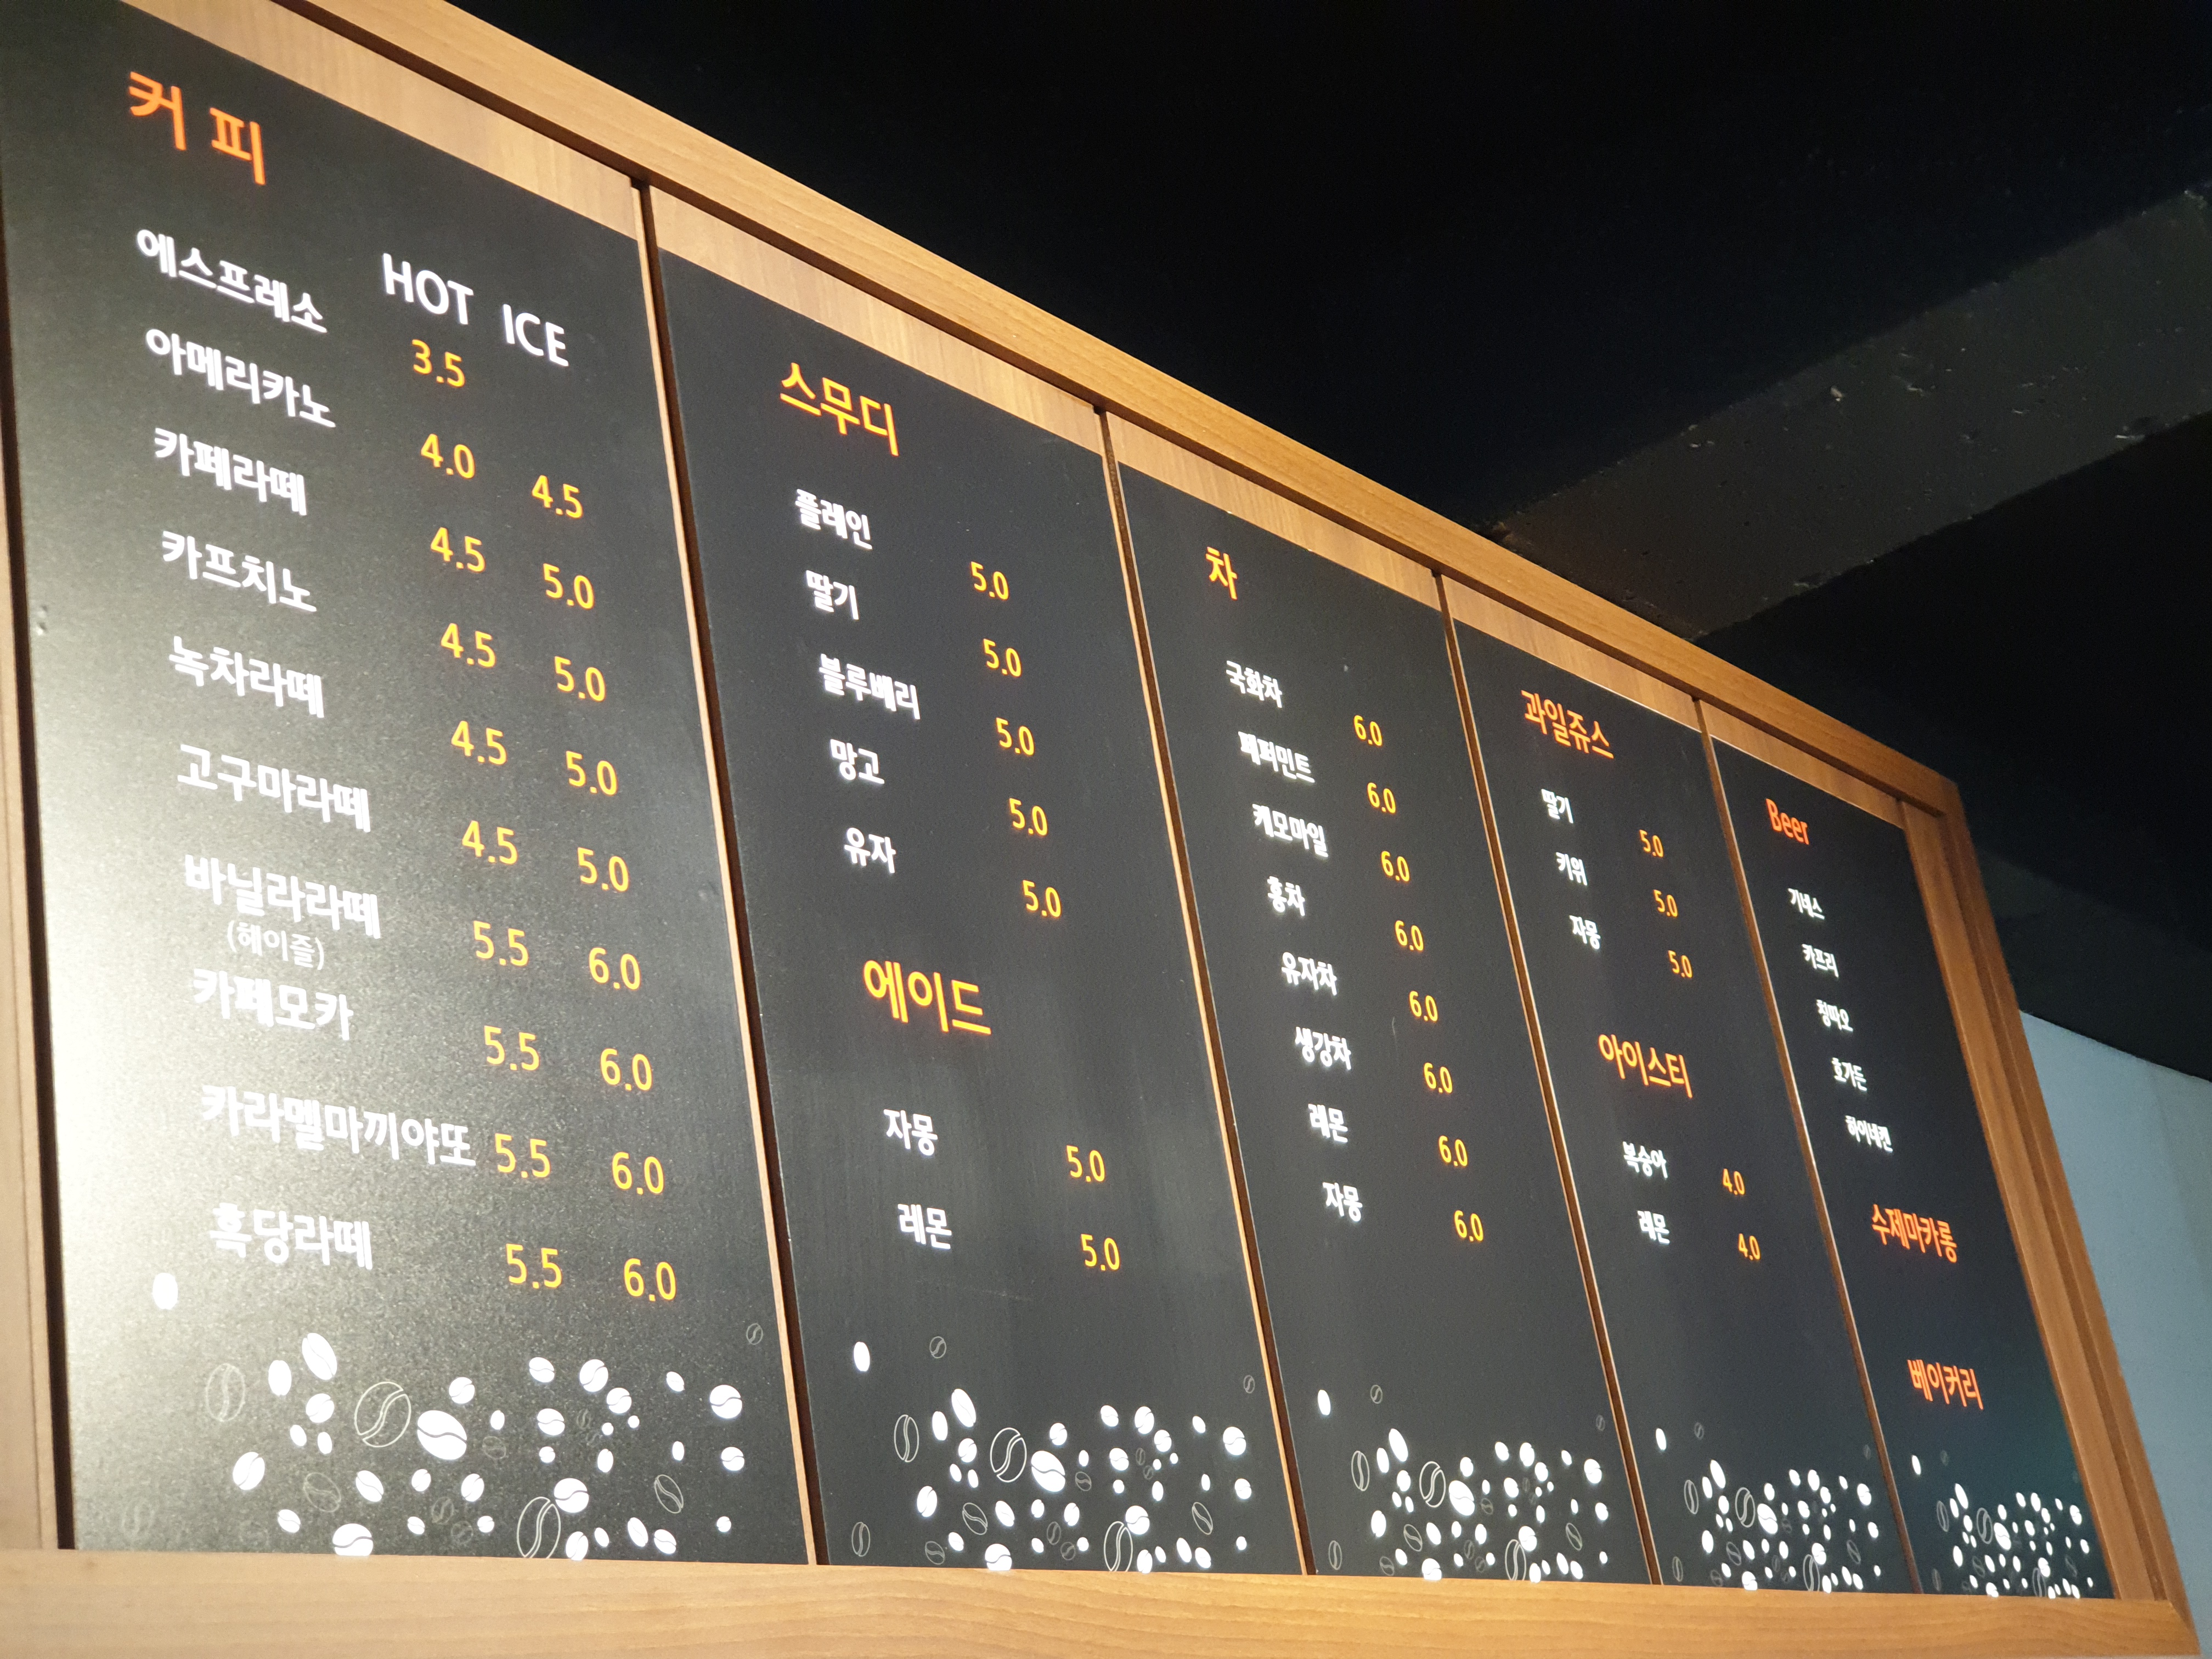 커피
HOT ICE
에스프레소 3.5
아메리카노 4.0 4.5
카페라떼 4.5 5.0
카프치노 4.5 5.0
녹차라떼 4.5 5.0
고구마라떼 4.5 5.0
바닐라라떼 5.5 6.0
(헤이즐)
카페모카 5.5 6.0
카라멜마끼야또 5.5 6.0
흑당라떼 5.5 6.0
스무디
플레인 5.0
딸기 5.0
블루베리 5.0
망고 5.0
유자 5.0
에이드
자몽 5.0
레몬 5.0
차
국화차 6.0
페퍼민트 6.0
케모마일 6.0
홍차 6.0
유자차 6.0
생강차 6.0
레몬 6.0
자몽 6.0
과일쥬스
딸기 5.0
키위 5.0
자몽 5.0
아이스티
복숭아 4.0
레몬 4.0
Beer
기네스
카프리
칭따오
호가든
하이네켄
수제마카롱
베이커리